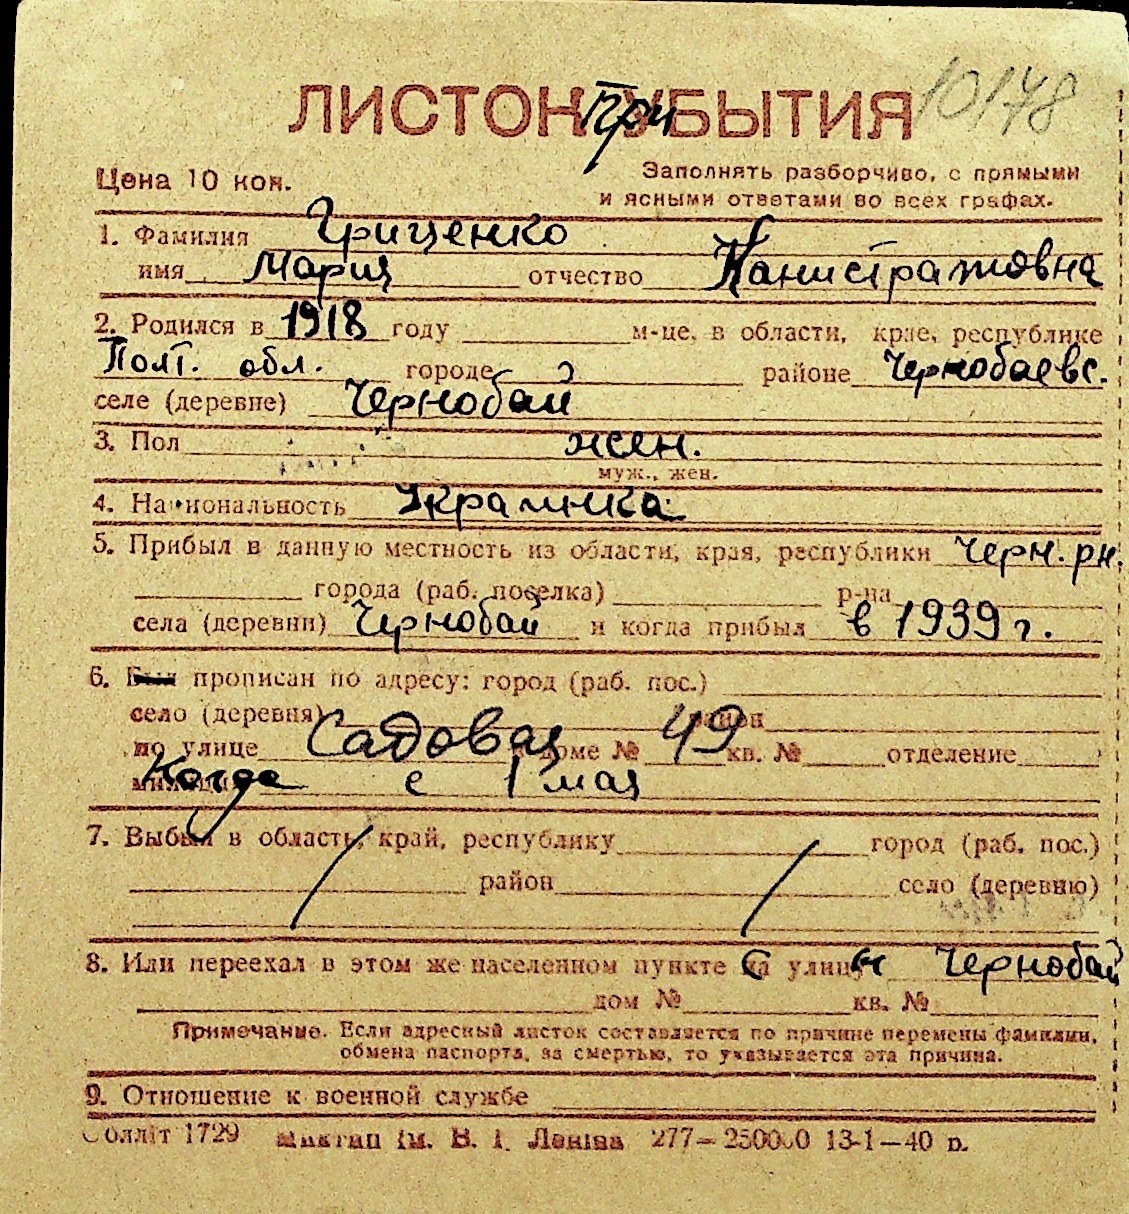 10178
ЛИСТОК При БЫТИЯ
Цена 10 коп.
Заполнять разборчиво, с прямыми
и ясными ответами во всех графах.
1. Фамилия Гриценко
имя Мария отчество Канистратовна
2. Родился в 1918 году м-це, в области, крае, республике
Полт. обл. городе районе Чернобаевс.
селе (деревне) Чернобай
3. Пол жен.
муж., жен.
4. Национальность Украинка
5. Прибыл в данную местность из области, края, республики Черн. рн.
города (раб. поселка) р-на
села (деревни) Чернобай и когда прибыл в 1939 г.
6. прописан по адресу: город (раб. пос.)
село (деревня) район
по улице Садовая доме № 49 кв. № отделение
милиции Когда с 1 мая
7. Выбыл в область, край, республику город (раб. пос.)
район село (деревню)
8. Или переехал в этом же населенном пункте на улицу Чернобай
дом № кв. №
Примечание. Если адресный листок составляется по причине перемены фамилии,
обмена паспорта, за смертью, то указывается эта причина.
9. Отношение к военной службе
Обллiт 1729 iм. В. I. Ленiна 277—250000 13-1—40 р.